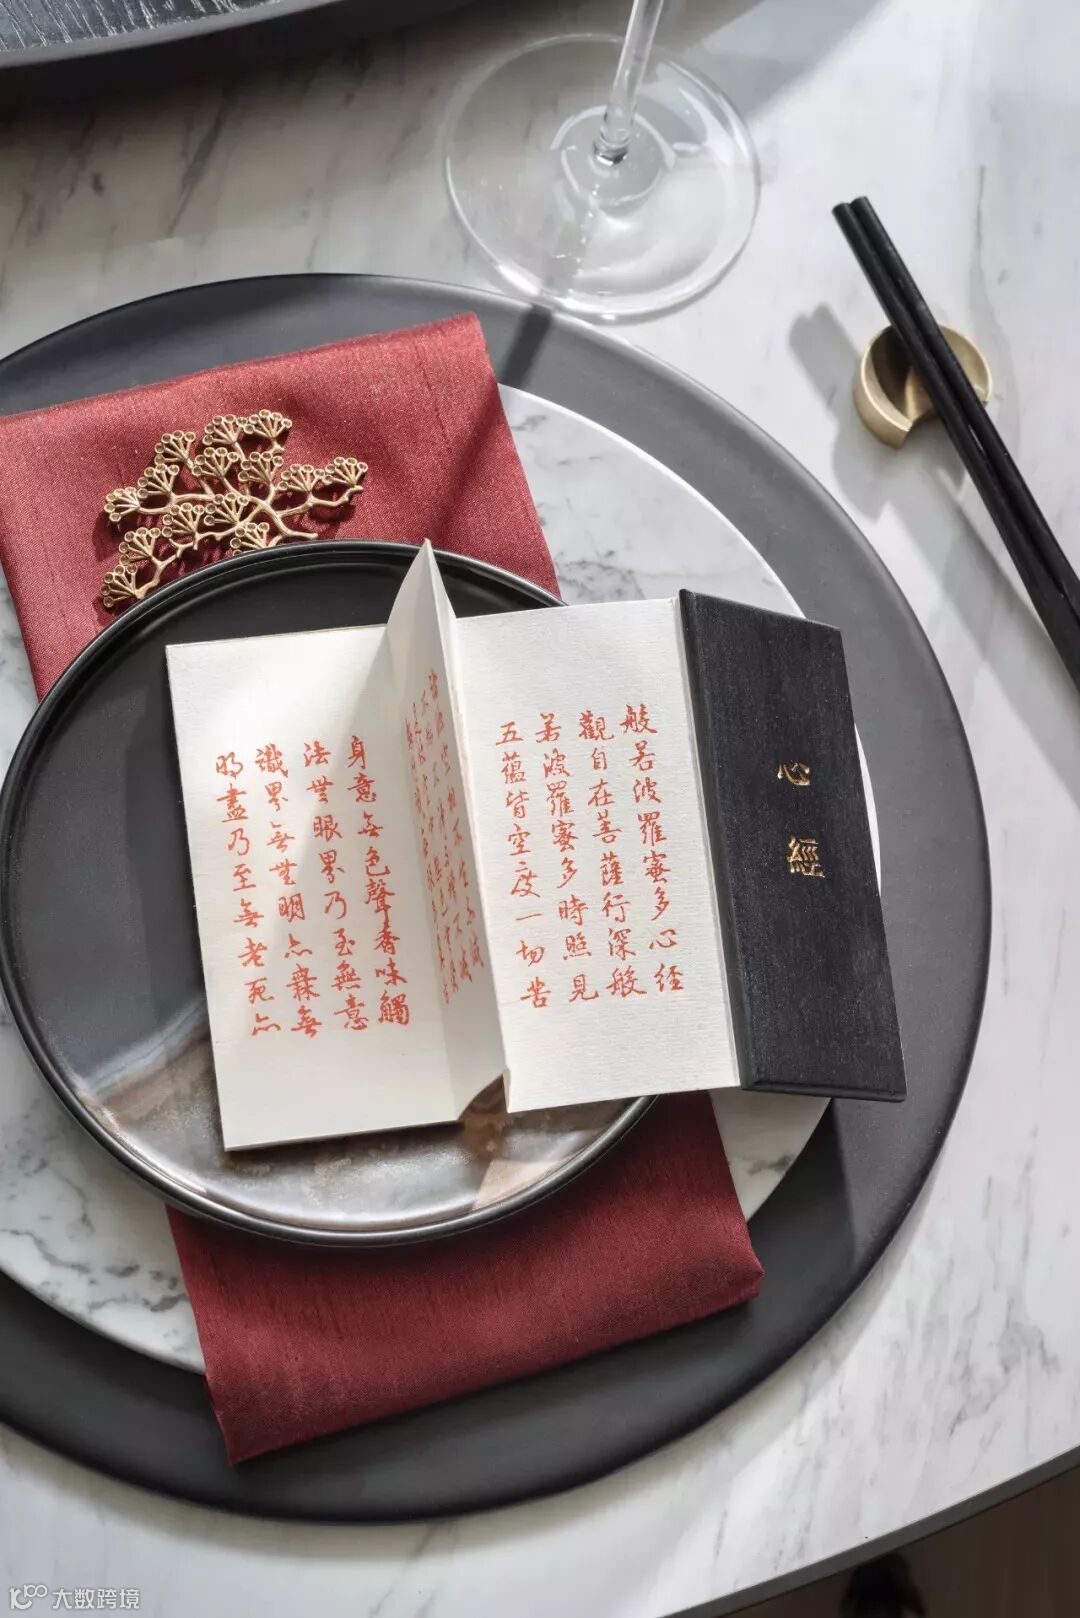 心經
般若波羅蜜多心経
觀自在菩薩行深般
若波羅蜜多時照見
五蘊皆空度一切苦
諸法空相不生不滅
不垢不淨不增不減
身意無色聲香味觸
法無眼界乃至無意
識界無無明亦無無
明盡乃至無老死亦
大数跨境